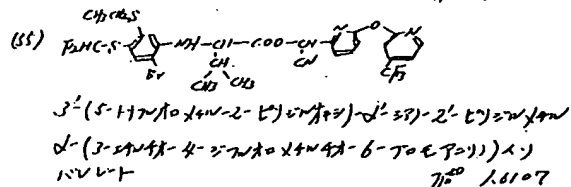 (55)
CH3CH2S
F2HC-S -NH-CH-COO-CH- N -O- N
Br CH CN CF3
CH3 CH3
3'-(5-トリフルオロメチル-2-ピリジルオキシ)-α'-シアノ-2'-ピリジルメチル
α-(3-エチルチオ-4-ジフルオロメチルチオ-6-ブロモアニリノ)イソ
バレレート n20D 1.6107